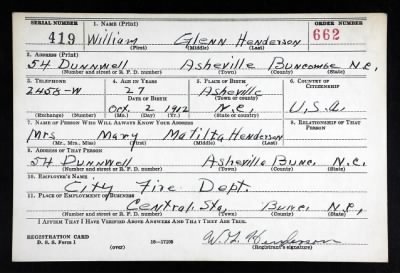 SERIAL NUMBER 1. Name (Print) ORDER NUMBER
419 William Glenn Henderson 662
(First) (Middle) (Last)
2. Address (Print)
54 Dunnwell Asheville Buncombe N.C.
(Number and street or R. F. D. number) (Town) (County) (State)
3. Telephone 4. Age in Years 5. Place of Birth 6. Country of Citizenship
2455-W 27 Asheville
Date of Birth (Town or county)
Oct. 2 1912 N.C. U.S.A.
(Exchange) (Number) (Mo.) (Day) (Yr.) (State or country)
7. Name of Person Who Will Always Know Your Address 8. Relationship of That Person
Mrs Mary Matilta Henderson
(Mr., Mrs., Miss) (First) (Middle) (Last)
9. Address of That Person
54 Dunnwell Asheville Bunc. N.C.
(Number and street or R. F. D. number) (Town) (County) (State)
10. Employer's Name
City Fire Dept.
11. Place of Employment or Business
Central Sta. Bunc. N.C.
(Number and street or R. F. D. number) (Town) (County) (State)
I Affirm That I Have Verified Above Answers and That They Are True.
REGISTRATION CARD
D. S. S. Form 1 (over) 16—17105 W. G. Henderson
(Registrant's signature)